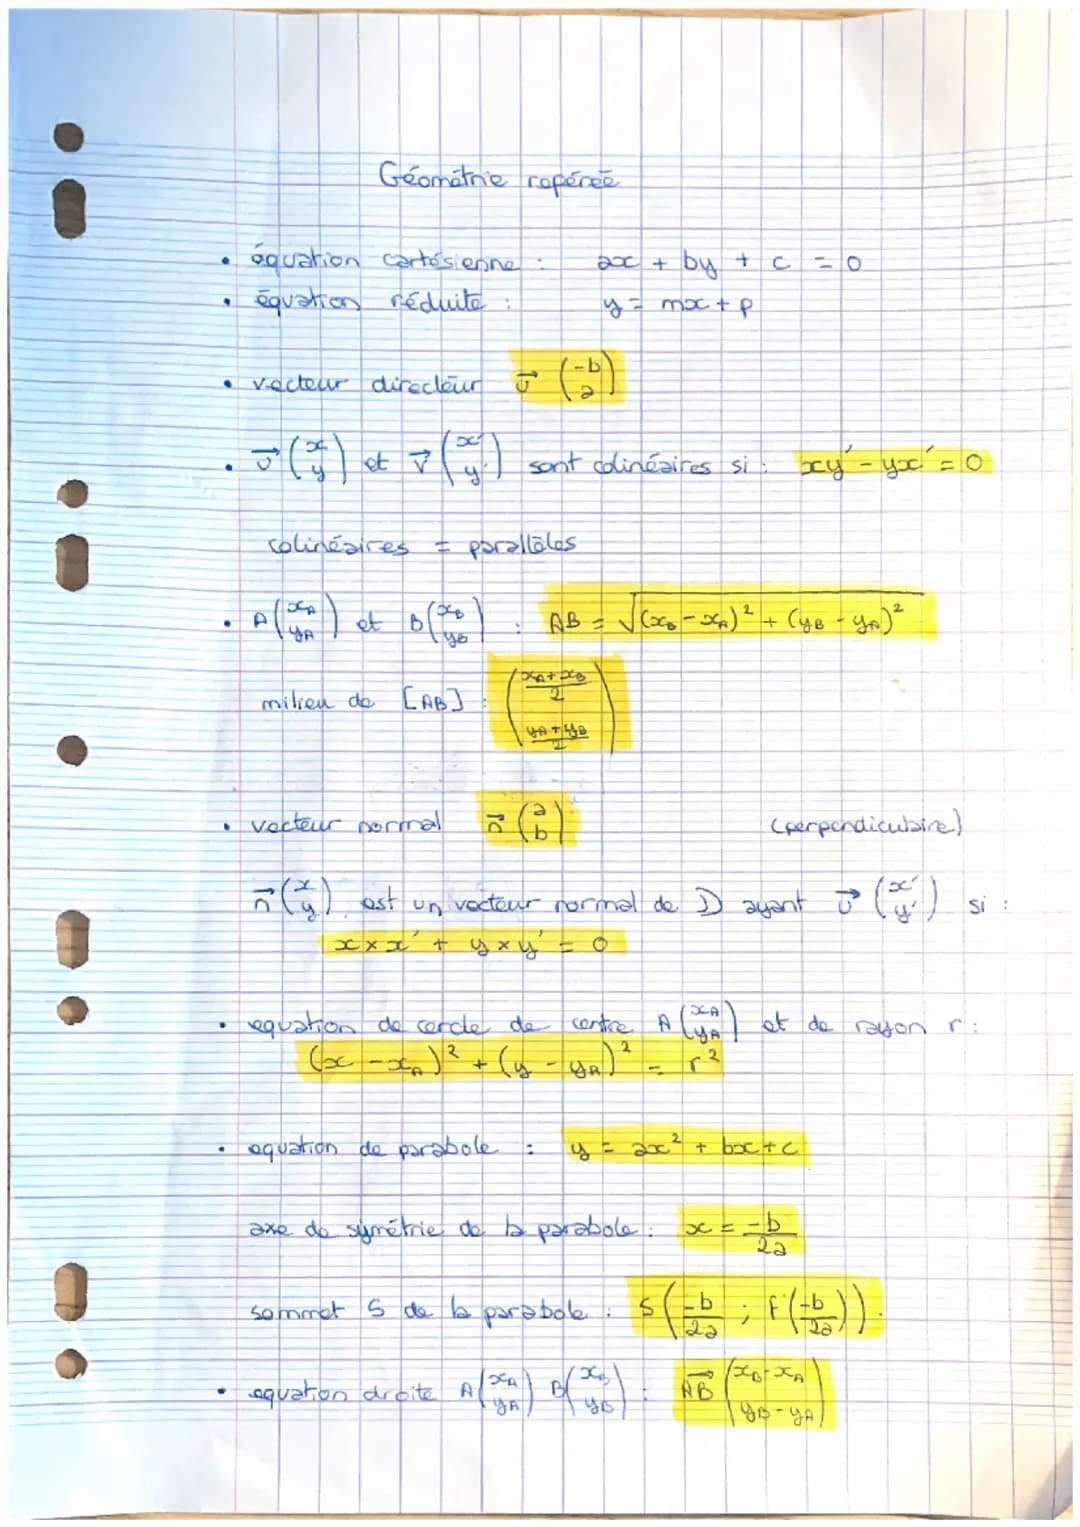 Géométrie repérée
• équation cartésienne : ax + by + c = 0
• équation réduite : y = mx + p
• vecteur directeur u⃗ (-b a)
• u⃗ (x y) et v⃗ (x' y') sont colinéaires si : xy' - yx' = 0
colinéaires = parallèles
• A (xA yA) et B (xB yB) : AB = √((xB - xA)² + (yB - yA)²)
milieu de [AB] : ((xA + xB)/2 (yA + yB)/2)
• vecteur normal n⃗ (a b) (perpendiculaire)
n⃗ (x y) est un vecteur normal de D ayant u⃗ (x' y') si :
x × x' + y × y' = 0
• equation de cercle de centre A (xA yA) et de rayon r :
(x - xA)² + (y - yA)² = r²
• equation de parabole : y = ax² + bx + c
axe de symétrie de la parabole : x = -b/2a
sommet S de la parabole : S (-b/2a ; f(-b/2a)).
• equation droite A (xA yA) B (xB yB) : AB⃗ (xB - xA yB - yA)